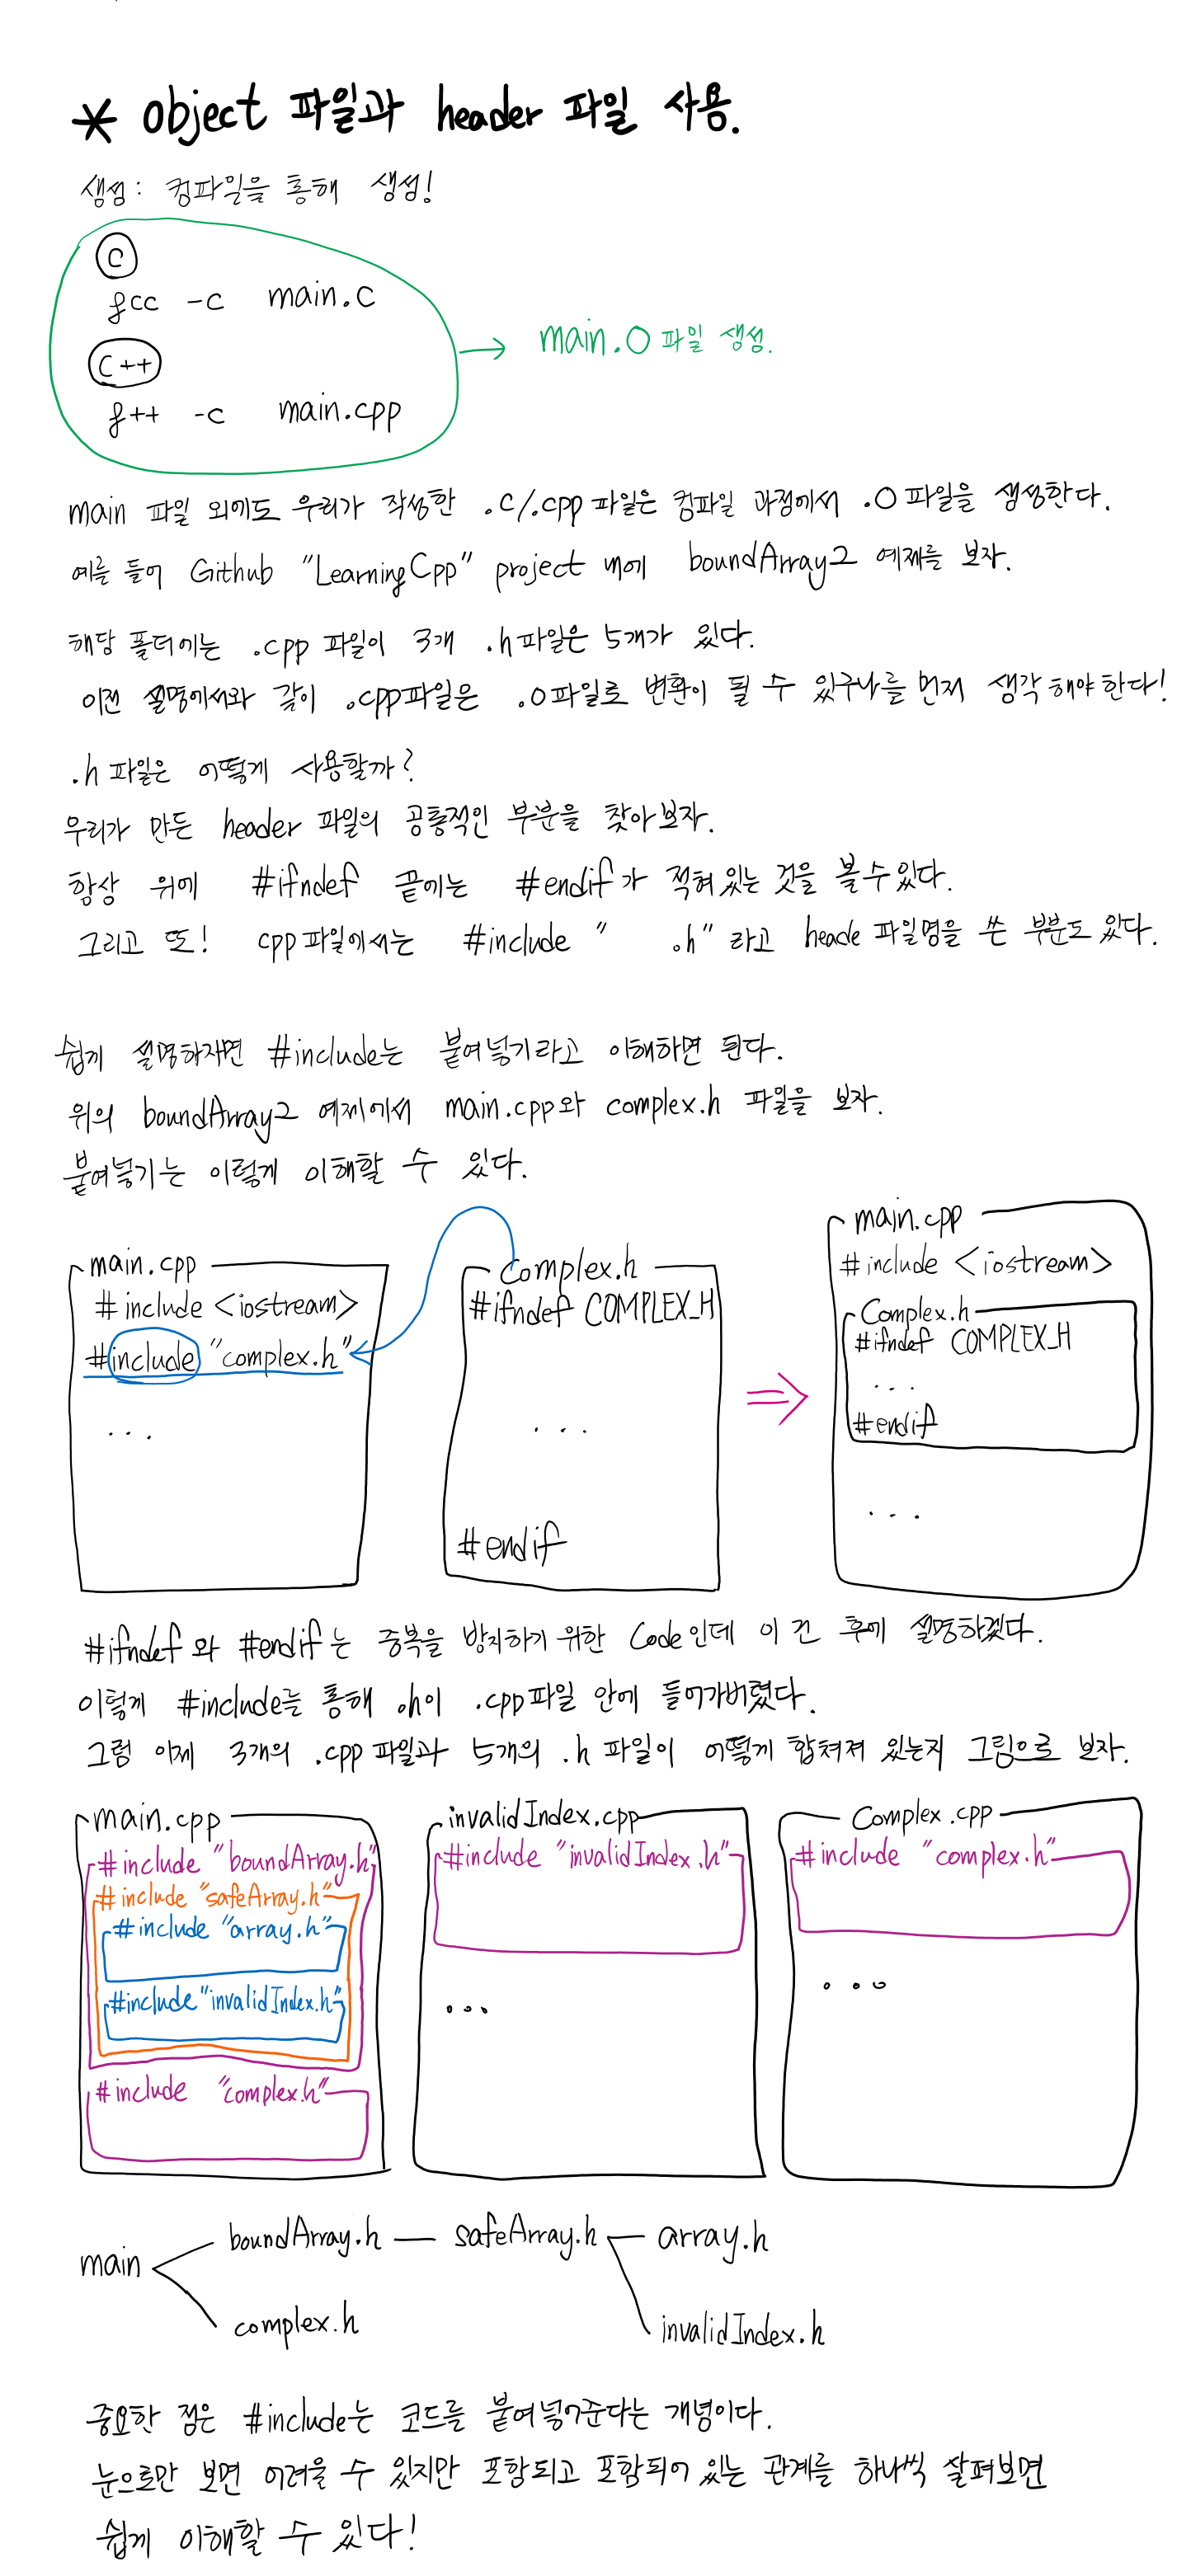 * object 파일과 header 파일 사용.
생성: 컴파일을 통해 생성!
C
gcc -c main.c
C++
g++ -c main.cpp
→ main.o 파일 생성.
main 파일 외에도 우리가 작성한 .c/.cpp 파일은 컴파일 과정에서 .o 파일을 생성한다.
예를 들어 Github "LearningCpp" project 내에 boundArray2 예제를 보자.
해당 폴더에는 .cpp 파일이 3개 .h 파일은 5개가 있다.
이전 설명에서와 같이 .cpp파일은 .o파일로 변환이 될 수 있구나를 먼저 생각해야한다!
.h 파일은 어떻게 사용할까?
우리가 만든 header 파일의 공통적인 부분을 찾아보자.
항상 위에 #ifndef 끝에는 #endif가 적혀있는 것을 볼 수 있다.
그리고 또! cpp 파일에서는 #include " .h" 라고 heade 파일명을 쓴 부분도 있다.
쉽게 설명하자면 #include는 붙여넣기라고 이해하면 된다.
위의 boundArray2 예제에서 main.cpp와 complex.h 파일을 보자.
붙여넣기는 이렇게 이해할 수 있다.
main.cpp
#include <iostream>
#include "complex.h"
...
Complex.h
#ifndef COMPLEX_H
...
#endif
⇒
main.cpp
#include <iostream>
Complex.h
#ifndef COMPLEX_H
...
#endif
...
#ifndef와 #endif는 중복을 방지하기 위한 Code인데 이건 후에 설명하겠다.
이렇게 #include를 통해 .h이 .cpp파일 안에 들어가버렸다.
그럼 이제 3개의 .cpp 파일과 5개의 .h 파일이 어떻게 합쳐져 있는지 그림으로 보자.
main.cpp
#include "boundArray.h"
#include "safeArray.h"
#include "array.h"
#include "invalidIndex.h"
#include "complex.h"
invalidIndex.cpp
#include "invalidIndex.h"
...
Complex.cpp
#include "complex.h"
...
boundArray.h — safeArray.h — array.h
main
complex.h
invalidIndex.h
중요한 점은 #include는 코드를 붙여넣어준다는 개념이다.
눈으로만 보면 어려울 수 있지만 포함되고 포함되어 있는 관계를 하나씩 살펴보면
쉽게 이해할 수 있다!